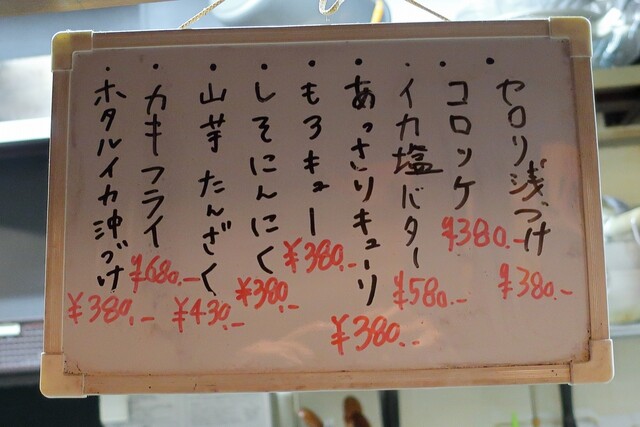 ・セロリ浅づけ ¥380.-
・コロッケ ¥380.-
・イカ塩バター ¥580.-
・あっさりキューリ ¥380.-
・もろキュー ¥380.-
・しそにんにく ¥380.-
・山芋たんざく ¥430.-
・カキフライ ¥680.-
・ホタルイカ沖づけ ¥380.-